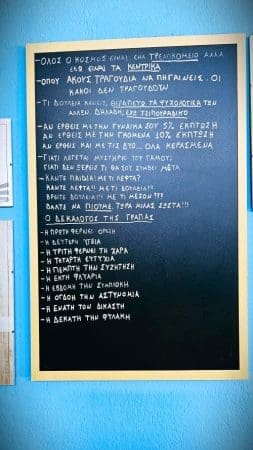 -ΟΛΟΣ Ο ΚΟΣΜΟΣ ΕΙΝΑΙ ΕΝΑ ΤΡΕΛΟΚΟΜΕΙΟ ΑΛΛΑ
ΕΔΩ ΕΙΝΑΙ ΤΑ ΚΕΝΤΡΙΚΑ
-ΟΠΟΥ ΑΚΟΥΣ ΤΡΑΓΟΥΔΙΑ ΝΑ ΠΗΓΑΙΝΕΙΣ.. ΟΙ
ΚΑΚΟΙ ΔΕΝ ΤΡΑΓΟΥΔΟΥΝ
-ΤΙ ΔΟΥΛΕΙΑ ΚΑΝΕΙΣ; ΘΕΡΑΠΕΥΩ ΤΑ ΨΥΧΟΛΟΓΙΚΑ ΤΩΝ
ΑΛΛΩΝ ΔΗΛΑΔΗ; ΕΧΩ ΤΣΙΠΟΥΡΑΔΙΚΟ
-ΑΝ ΕΡΘΕΙΣ ΜΕ ΤΗΝ ΓΥΝΑΙΚΑ ΣΟΥ 5% ΕΚΠΤΩΣΗ
ΑΝ ΕΡΘΕΙΣ ΜΕ ΤΗΝ ΓΚΟΜΕΝΑ 10% ΕΚΠΤΩΣΗ
ΑΝ ΕΡΘΕΙΣ ΚΑΙ ΜΕ ΤΙΣ ΔΥΟ.. ΟΛΑ ΚΕΡΑΣΜΕΝΑ
-ΓΙΑΤΙ ΛΕΓΕΤΑΙ ΜΥΣΤΗΡΙΟ ΤΟΥ ΓΑΜΟΥ;
ΓΙΑΤΙ ΔΕΝ ΞΕΡΕΙΣ ΤΙ ΘΑ ΣΟΥ ΣΥΜΒΕΙ ΜΕΤΑ
-ΚΑΝΤΕ ΠΑΙΔΙΑ! ΜΕ ΤΙ ΛΕΦΤΑ?
ΚΑΝΤΕ ΛΕΦΤΑ!! ΜΕ ΤΙ ΔΟΥΛΕΙΑ?
ΒΡΕΙΤΕ ΔΟΥΛΕΙΑ!!! ΜΕ ΤΙ ΜΕΣΟΝ???
ΒΑΛΤΕ ΝΑ ΠΙΟΥΜΕ, ΤΩΡΑ ΜΙΛΑΣ ΣΩΣΤΑ!!!
Ο ΔΕΚΑΛΟΓΟΣ ΤΗΣ ΓΡΑΠΑΣ
-Η ΠΡΩΤΗ ΦΕΡΝΕΙ ΟΡΕΞΗ
-Η ΔΕΥΤΕΡΗ ΥΓΕΙΑ
-Η ΤΡΙΤΗ ΦΕΡΝΕΙ ΤΗ ΧΑΡΑ
-Η ΤΕΤΑΡΤΗ ΕΥΤΥΧΙΑ
-Η ΠΕΜΠΤΗ ΤΗΝ ΣΥΖΗΤΗΣΗ
-Η ΕΚΤΗ ΦΛΥΑΡΙΑ
-Η ΕΒΔΟΜΗ ΤΗΝ ΣΥΜΠΛΟΚΗ
-Η ΟΓΔΟΗ ΤΗΝ ΑΣΤΥΝΟΜΙΑ
-Η ΕΝΑΤΗ ΤΟΝ ΔΙΚΑΣΤΗ
-Η ΔΕΚΑΤΗ ΤΗΝ ΦΥΛΑΚΗ